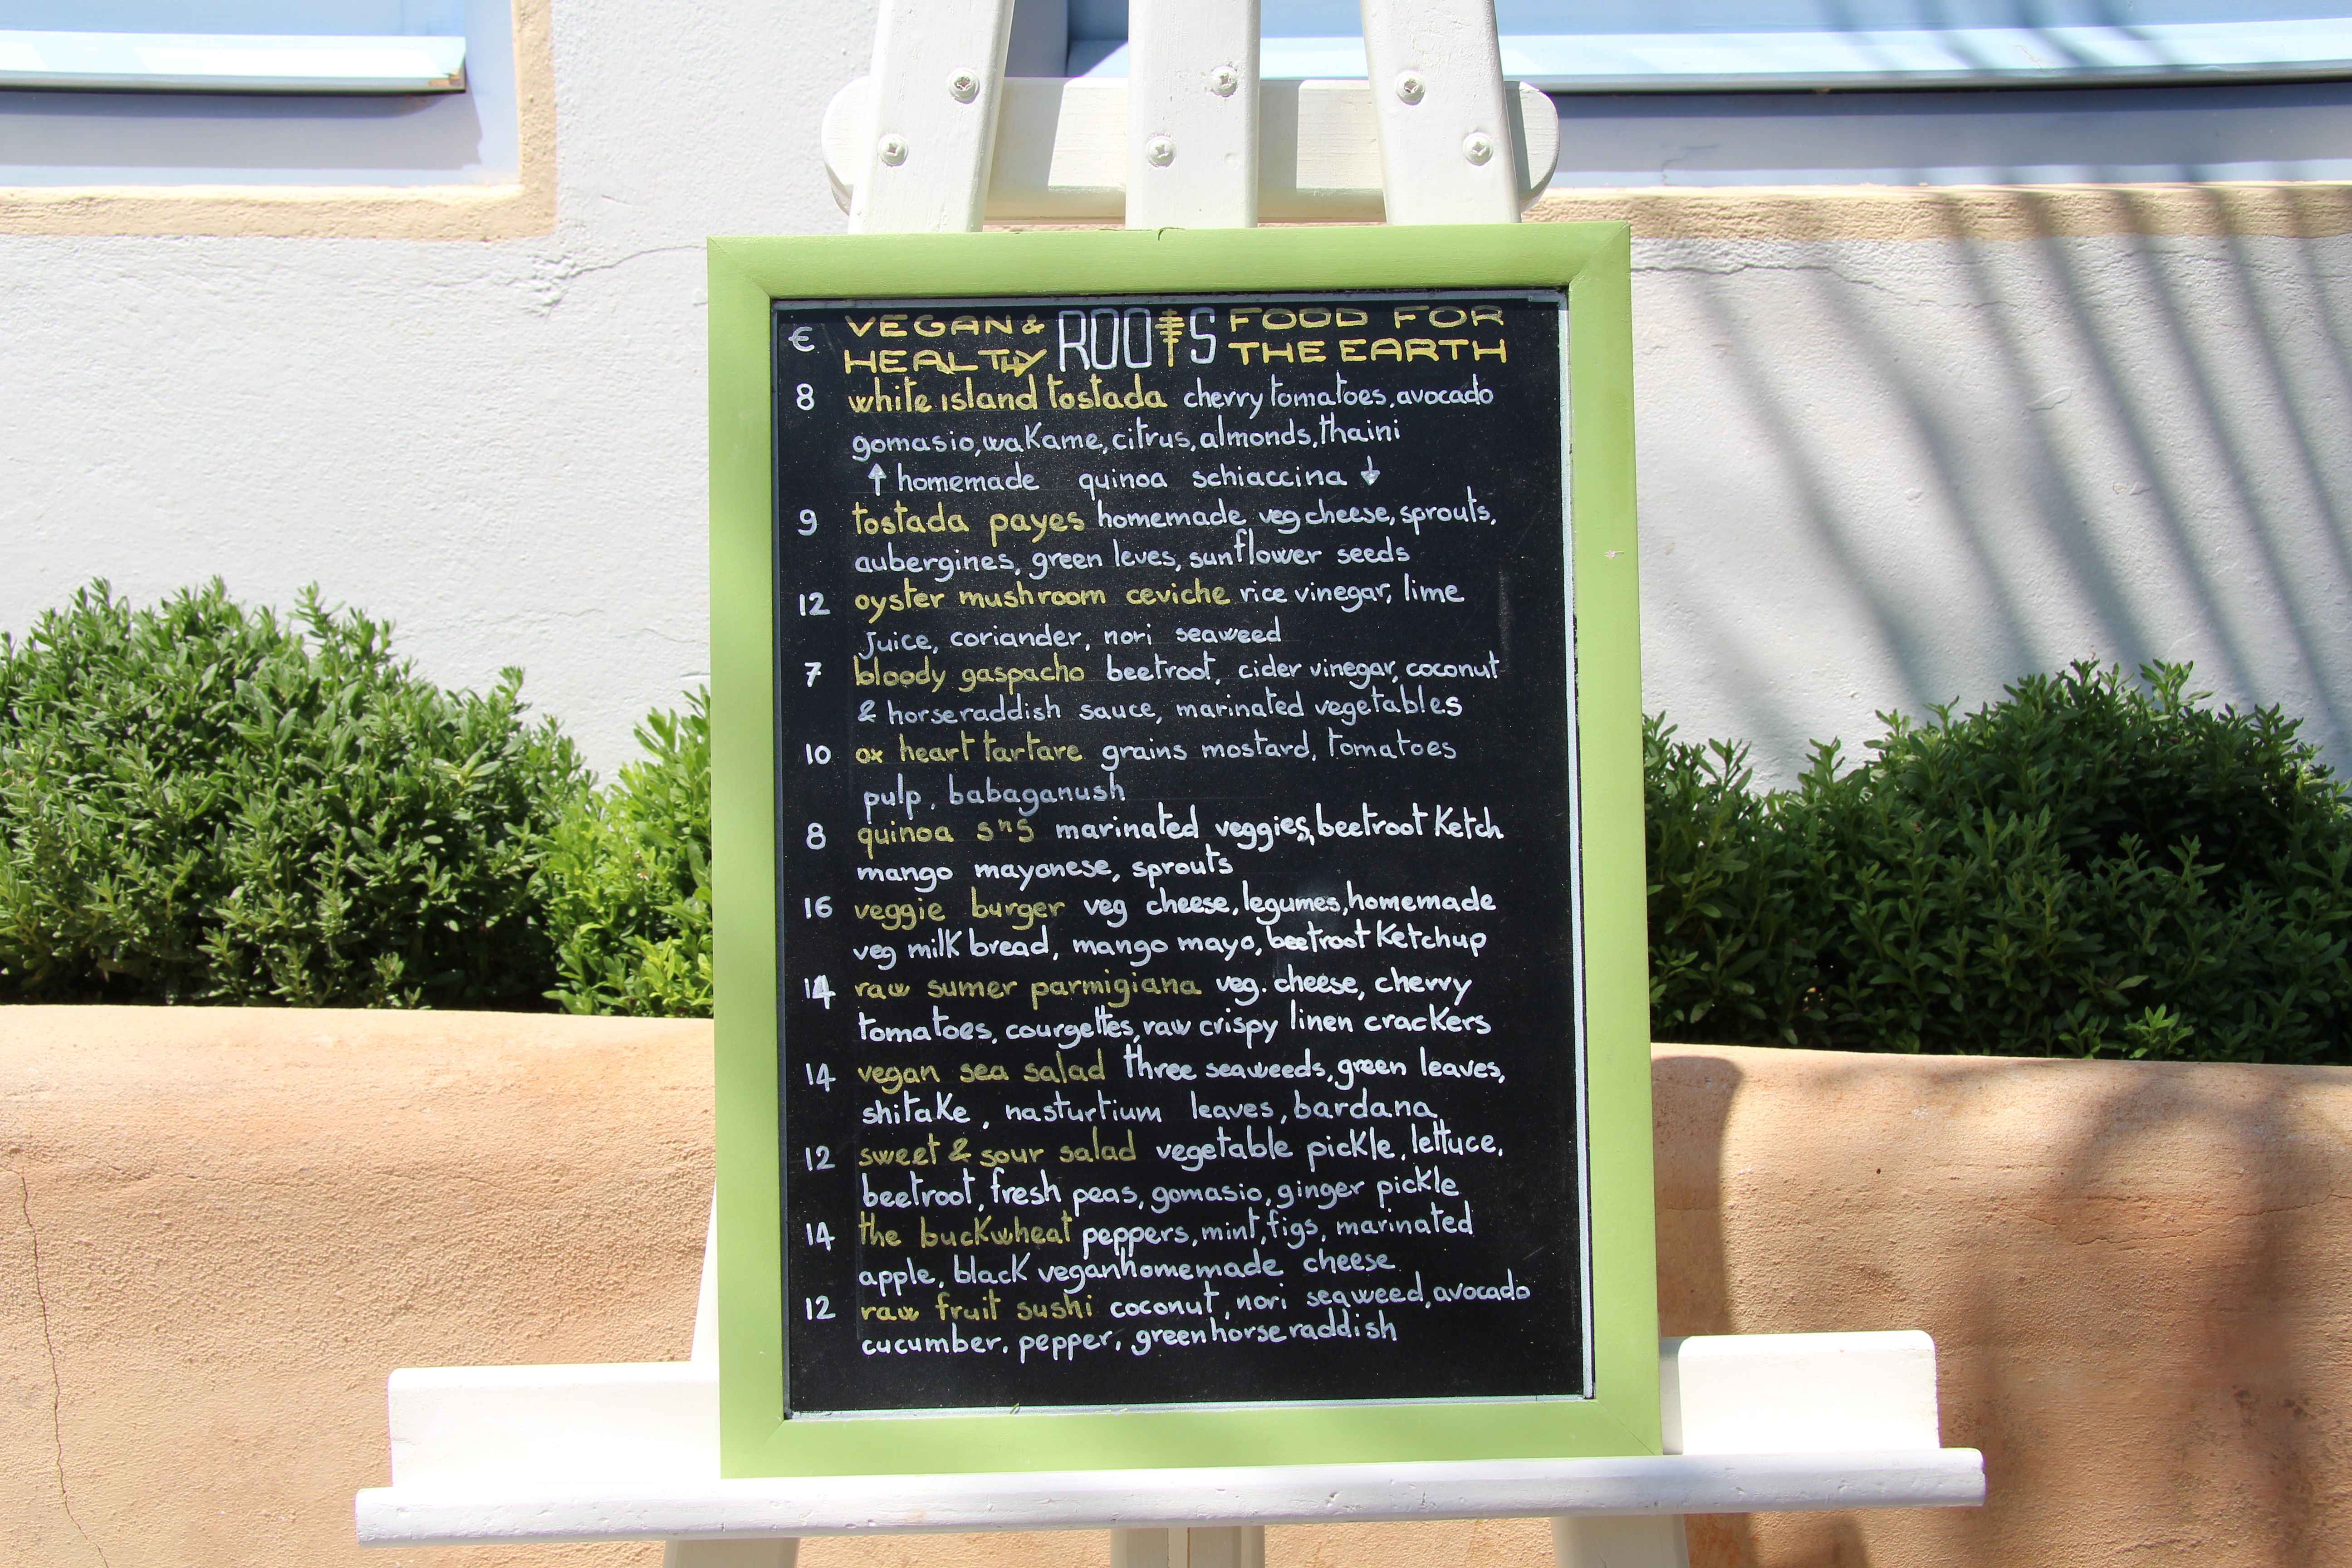 € VEGAN & HEALTHY ROOTS FOOD FOR THE EARTH
8 white island tostada cherry tomatoes, avocado
gomasio, wakame, citrus, almonds, thaini
↑ homemade quinoa schiaccina ↓
9 tostada payes homemade veg cheese, sprouts,
aubergines, green leves, sunflower seeds
12 oyster mushroom ceviche rice vinegar, lime
Juice, coriander, nori seaweed
7 bloody gaspacho beetroot, cider vinegar, coconut
& horseraddish sauce, marinated vegetables
10 ox heart tartare grains mostard, tomatoes
pulp, babaganush
8 quinoa s"s marinated veggies, beetroot Ketch
mango mayonese, sprouts
16 veggie burger veg cheese, legumes, homemade
veg milk bread, mango mayo, beetroot Ketchup
14 raw sumer parmigiana veg. cheese, cherry
tomatoes, courgettes, raw crispy linen crackers
14 vegan sea salad three seaweeds, green leaves,
shitake, nasturtium leaves, bardana
12 sweet & sour salad vegetable pickle, lettuce,
beetroot, fresh peas, gomasio, ginger pickle
14 the buckwheat peppers, mint, figs, marinated
apple, black veganhomemade cheese
12 raw fruit sushi coconut, nori seaweed, avocado
cucumber. pepper, green horseraddish